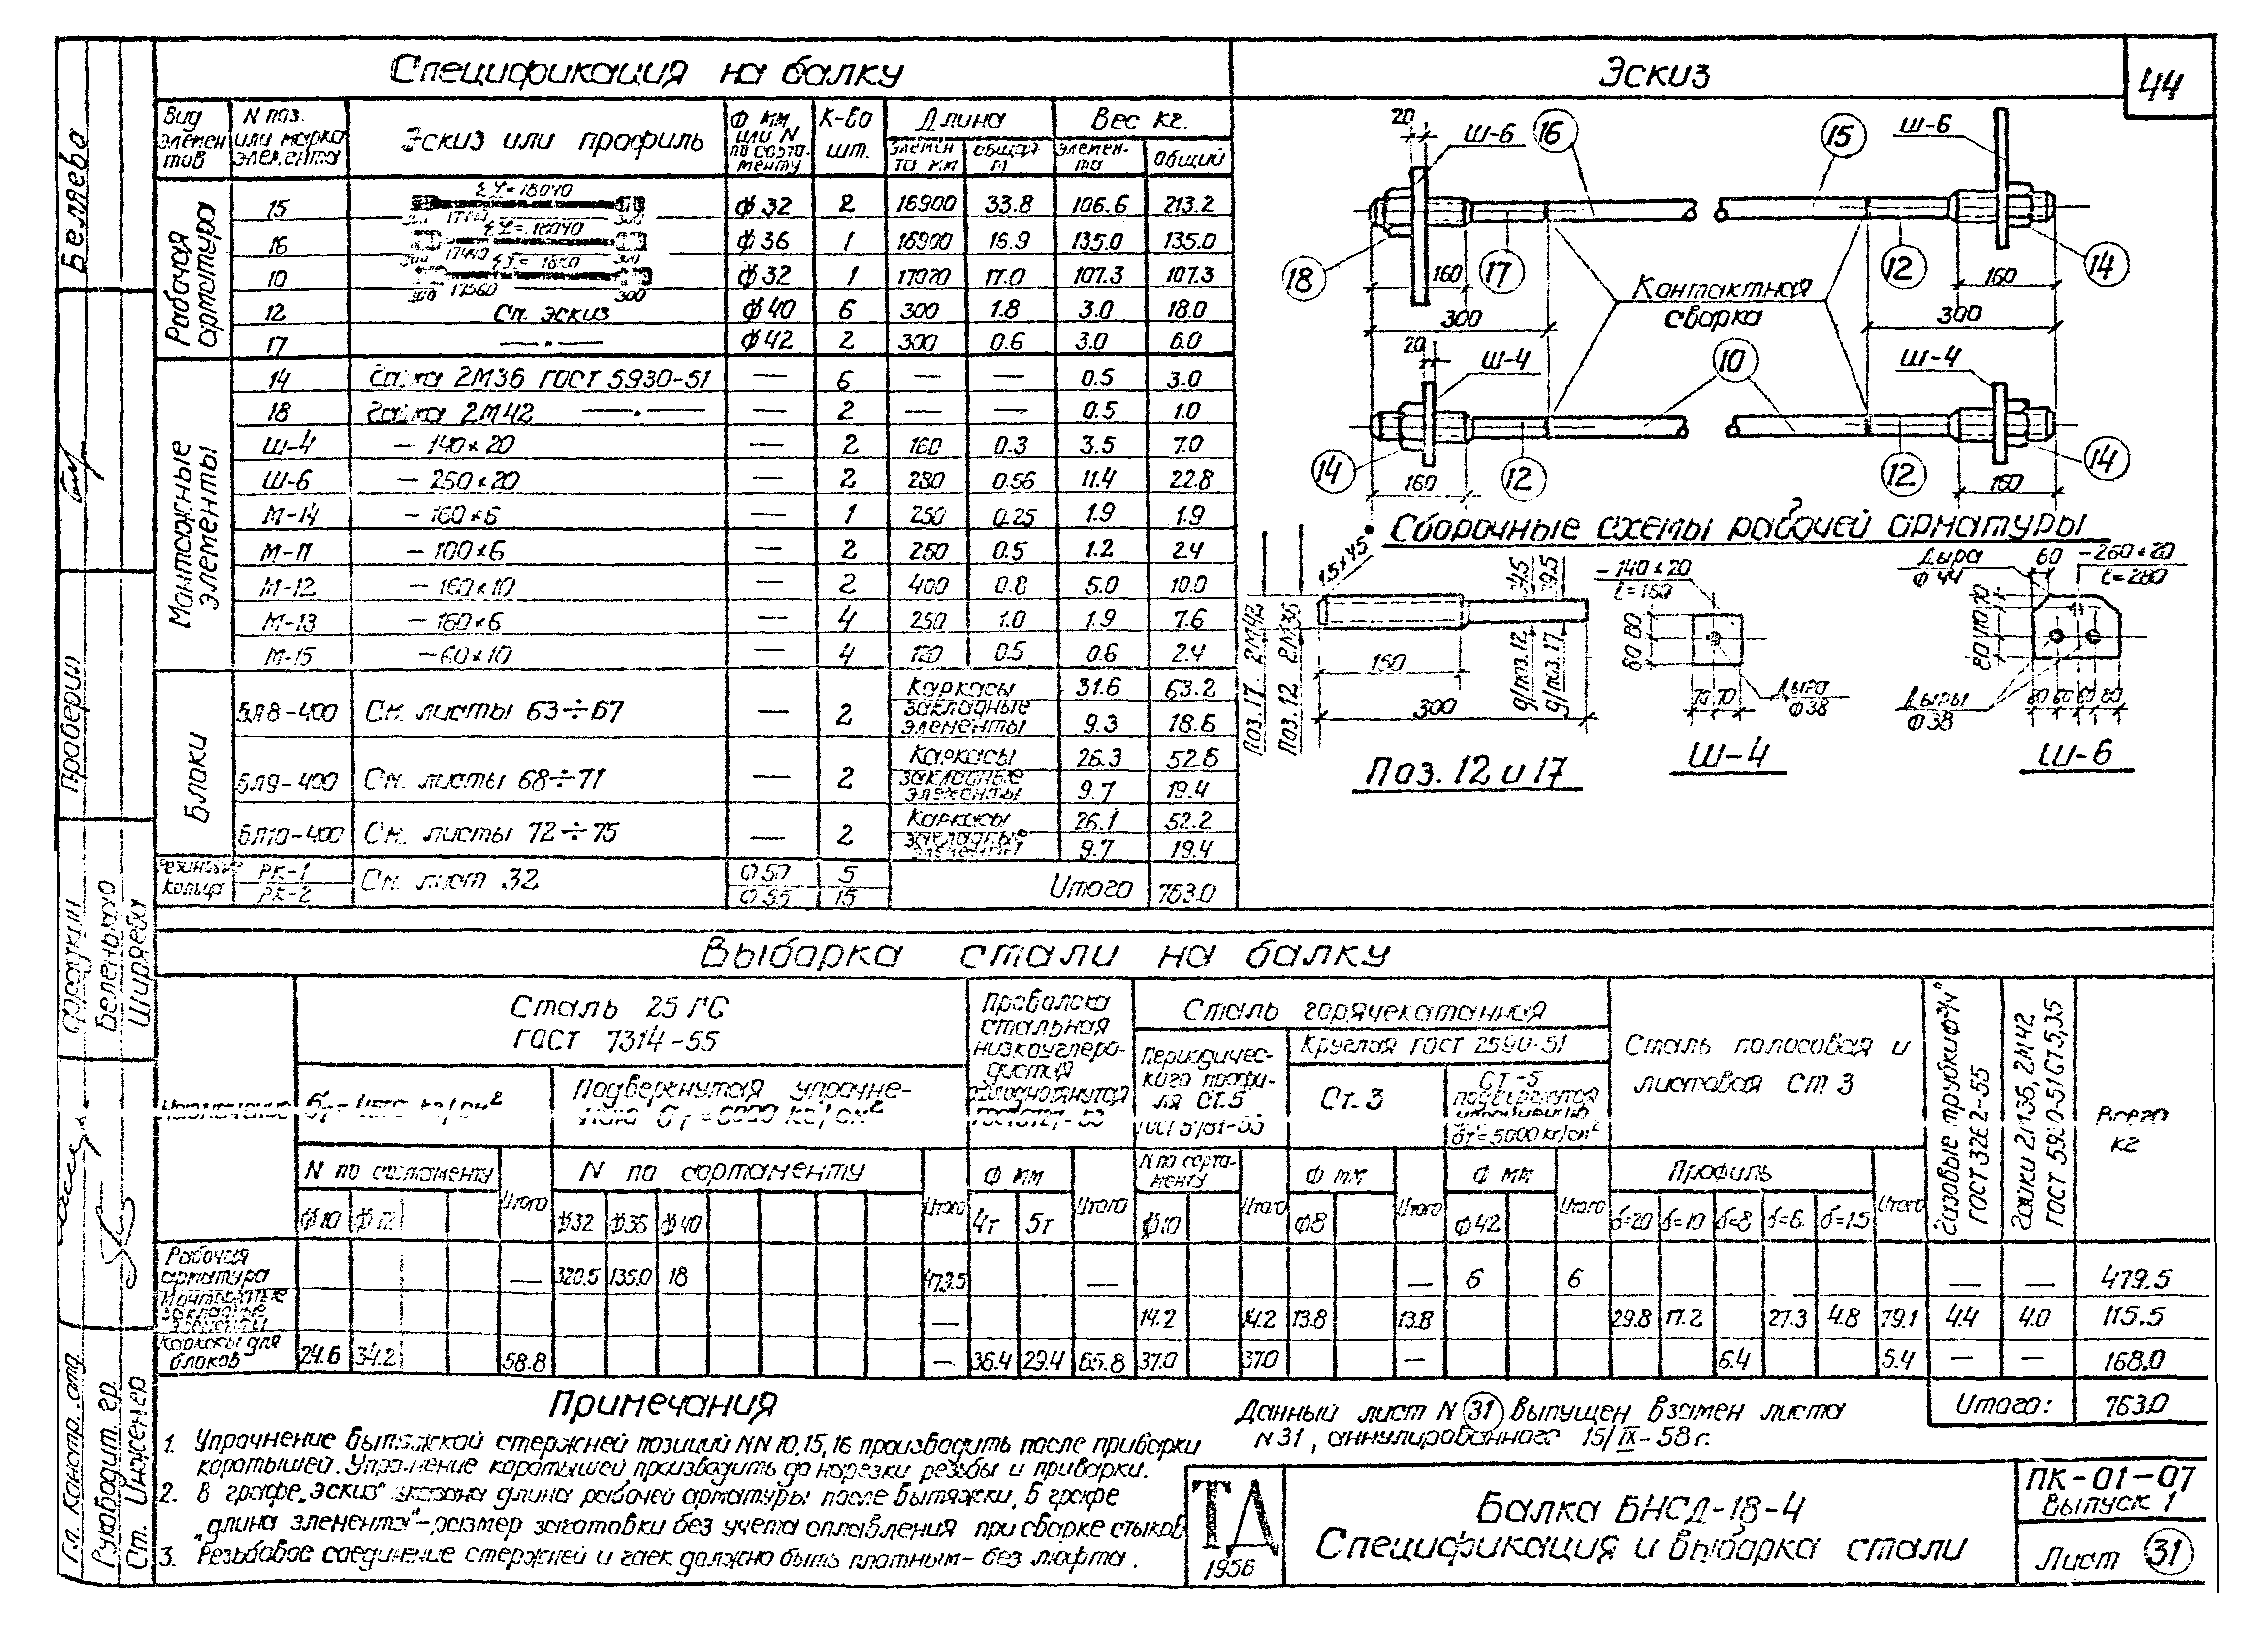 44
Спецификация на балку
Эскиз
Вид элементов
N поз. или марка элемента
Эскиз или профиль
Ф мм или N по сортаменту
К-во шт.
Длина
элемента мм
общая м
Вес кг.
элемента
общий
Рабочая арматура
15 ф32 2 16900 33.8 106.6 213.2
16 ф36 1 16900 16.9 135.0 135.0
10 ф32 1 17020 17.0 107.3 107.3
12 См. эскиз ф40 6 300 1.8 3.0 18.0
17 —"— ф42 2 300 0.6 3.0 6.0
Монтажные элементы
14 Гайка 2М36 ГОСТ 5930-51 — 6 — — 0.5 3.0
18 Гайка 2М42 —"— — 2 — — 0.5 1.0
Ш-4 – 140×20 — 2 160 0.3 3.5 7.0
Ш-6 – 260×20 — 2 280 0.56 11.4 22.8
М-14 – 160×6 — 1 250 0.25 1.9 1.9
М-11 – 100×6 — 2 250 0.5 1.2 2.4
М-12 – 160×10 — 2 400 0.8 5.0 10.0
М-13 – 160×6 — 4 250 1.0 1.9 7.6
М-15 – 60×10 — 4 120 0.5 0.6 2.4
Блоки
БЛ8-400 См. листы 63÷67 — 2 Каркасы 31.6 63.2
закладные элементы 9.3 18.6
БЛ9-400 См. листы 68÷71 — 2 Каркасы 26.3 52.6
закладные элементы 9.7 19.4
БЛ10-400 См. листы 72÷75 — 2 Каркасы 26.1 52.2
закладные элементы 9.7 19.4
Резиновые кольца
РК-1 См. лист 32 Ф50 5
РК-2 Ф55 15
Итого 763.0
20 Ш-6 16 15 Ш-6
18 160 17 12 160 14
300 Контактная сварка 300
20 Ш-4 10 Ш-4
14 160 12 12 160 14
Сборочные схемы рабочей арматуры
Поз. 17 2М42
Поз. 12 2М36
1.5×45°
д/поз.12
д/поз.17
150
300
Поз. 12 и 17
– 140×20
80 80
70 70
Дыра Ф38
Ш-4
Дыра Ф44
60
– 260×20
ℓ=280
Дыры Ф38
Ш-6
Выборка стали на балку
Назначение
Сталь 25ГС
ГОСТ 7314-55
Подвергнутая упрочнению
N по сортаменту
ф10 ф12 Итого
N по сортаменту
ф32 ф36 ф40 Итого
Проволока стальная низкоуглеродистая холоднотянутая
Ф мм
4т 5т Итого
Сталь горячекатанная
Периодического профиля Ст.5
N по сортаменту
ф10 Итого
Круглая ГОСТ 2590-51
Ст.3
Ф мм
Ф8 Итого
Ст-5
σт=5000 кг/см²
Ф мм
Ф42 Итого
Сталь полосовая и
листовая Ст 3
Профиль
δ=20 δ=10 δ=8 δ=6 δ=1.5 Итого
Газовые трубки ф3/4" ГОСТ 3262-55
Гайки 2М36, 2М42 ГОСТ 5930-51 Ст5,35
Всего кг
Рабочая арматура — 320.5 135.0 18 473.5 — — 6 6 — — 479.5
Монтажные закладные элементы — 14.2 14.2 13.8 13.8 29.8 17.2 27.3 4.8 79.1 4.4 4.0 115.5
Каркасы для блоков 24.6 34.2 58.8 — 36.4 29.4 65.8 37.0 37.0 — 6.4 — — 168.0
Итого: 763.0
Примечания
1. Упрочнение вытяжкой стержней позиций NN 10, 15, 16 производить после приварки
коротышей. Упрочнение коротышей производить до нарезки резьбы и приварки.
2. В графе „Эскиз" указана длина рабочей арматуры после вытяжки, в графе
„длина элемента" – размер заготовки без учета оплавления при сварке стыков
3. Резьбовое соединение стержней и гаек должно быть плотным – без люфта.
Данный лист N 31 выпущен взамен листа
N 31, аннулированного 15/IX-58г.
ТД
1956
Балка БНСД-18-4
Спецификация и выборка стали
ПК-01-07
Выпуск 1
Лист 31
Гл. констр. отд.
Руководит. гр.
Ст. инженер
Ширяева
Проверил
Беляева